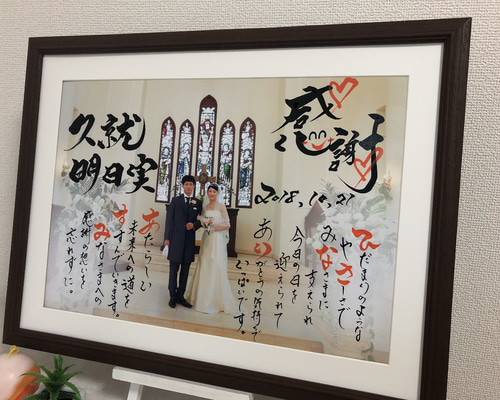 感謝
久就
明日実
2018,10,21
ひだまりのような
やさしさで
みなさまに
支えられ
今日の日を
迎えられて
ありがとうの気持ちで
いっぱいです。
あたらしい
未来への道を
すすんでいきます。
みなさまへの
感謝の想いを
忘れずに。